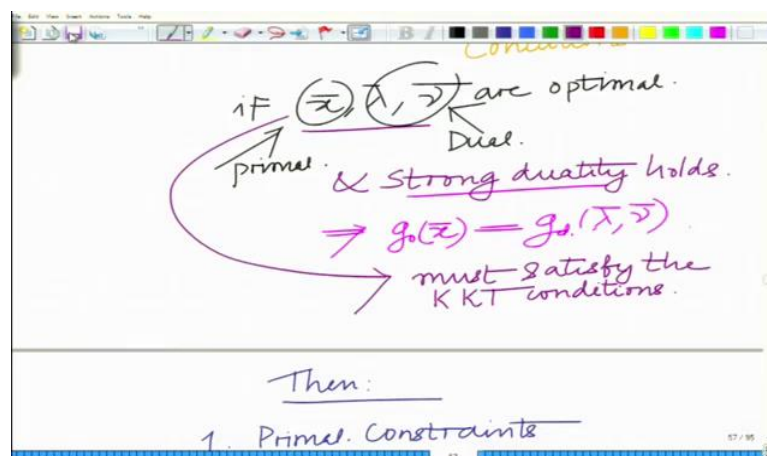 File Edit View Insert Actions Tools Help
Conditions
if x̄, λ̄, ν̄ are optimal.
primal. Dual.
& Strong duality holds.
⇒ g₀(x̄) = g_d(λ̄, ν̄)
must satisfy the
KKT conditions.
Then:
1. Primal. Constraints
57 / 95